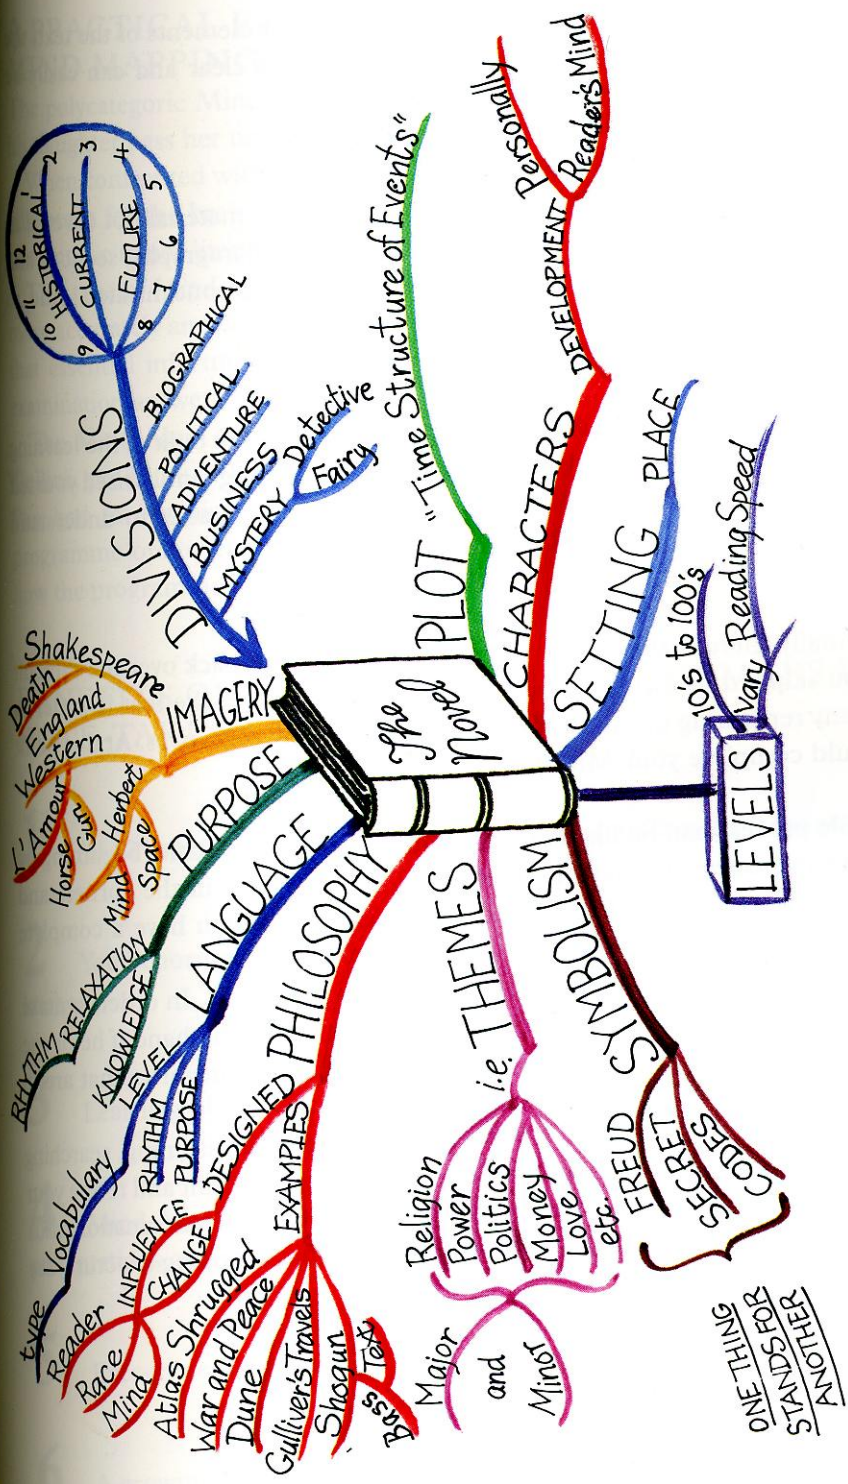 The
Novel
DIVISIONS
HISTORICAL
CURRENT
FUTURE
2
3
4
5
6
7
8
9
10
11
12
BIOGRAPHICAL
POLITICAL
ADVENTURE
BUSINESS
MYSTERY
Detective
Fairy
PLOT
"Time Structure of Events"
CHARACTERS
DEVELOPMENT
Personally
Reader's Mind
SETTING
PLACE
LEVELS
10's to 100's
vary Reading Speed
SYMBOLISM
FREUD
SECRET
CODES
ONE THING
STANDS FOR
ANOTHER
i.e. THEMES
Religion
Power
Politics
Money
Love
etc.
Major
and
Minor
PHILOSOPHY
DESIGNED
INFLUENCE
CHANGE
Reader
Race
Mind
EXAMPLES
Atlas Shrugged
War and Peace
Dune
Gulliver's Travels
Shogun
Text
Bass
LANGUAGE
LEVEL
RHYTHM
PURPOSE
Vocabulary
type
PURPOSE
RELAXATION
RHYTHM
KNOWLEDGE
IMAGERY
Shakespeare
Death
England
Western
L'Amour
Horse
Gun
Herbert
Mind
Space